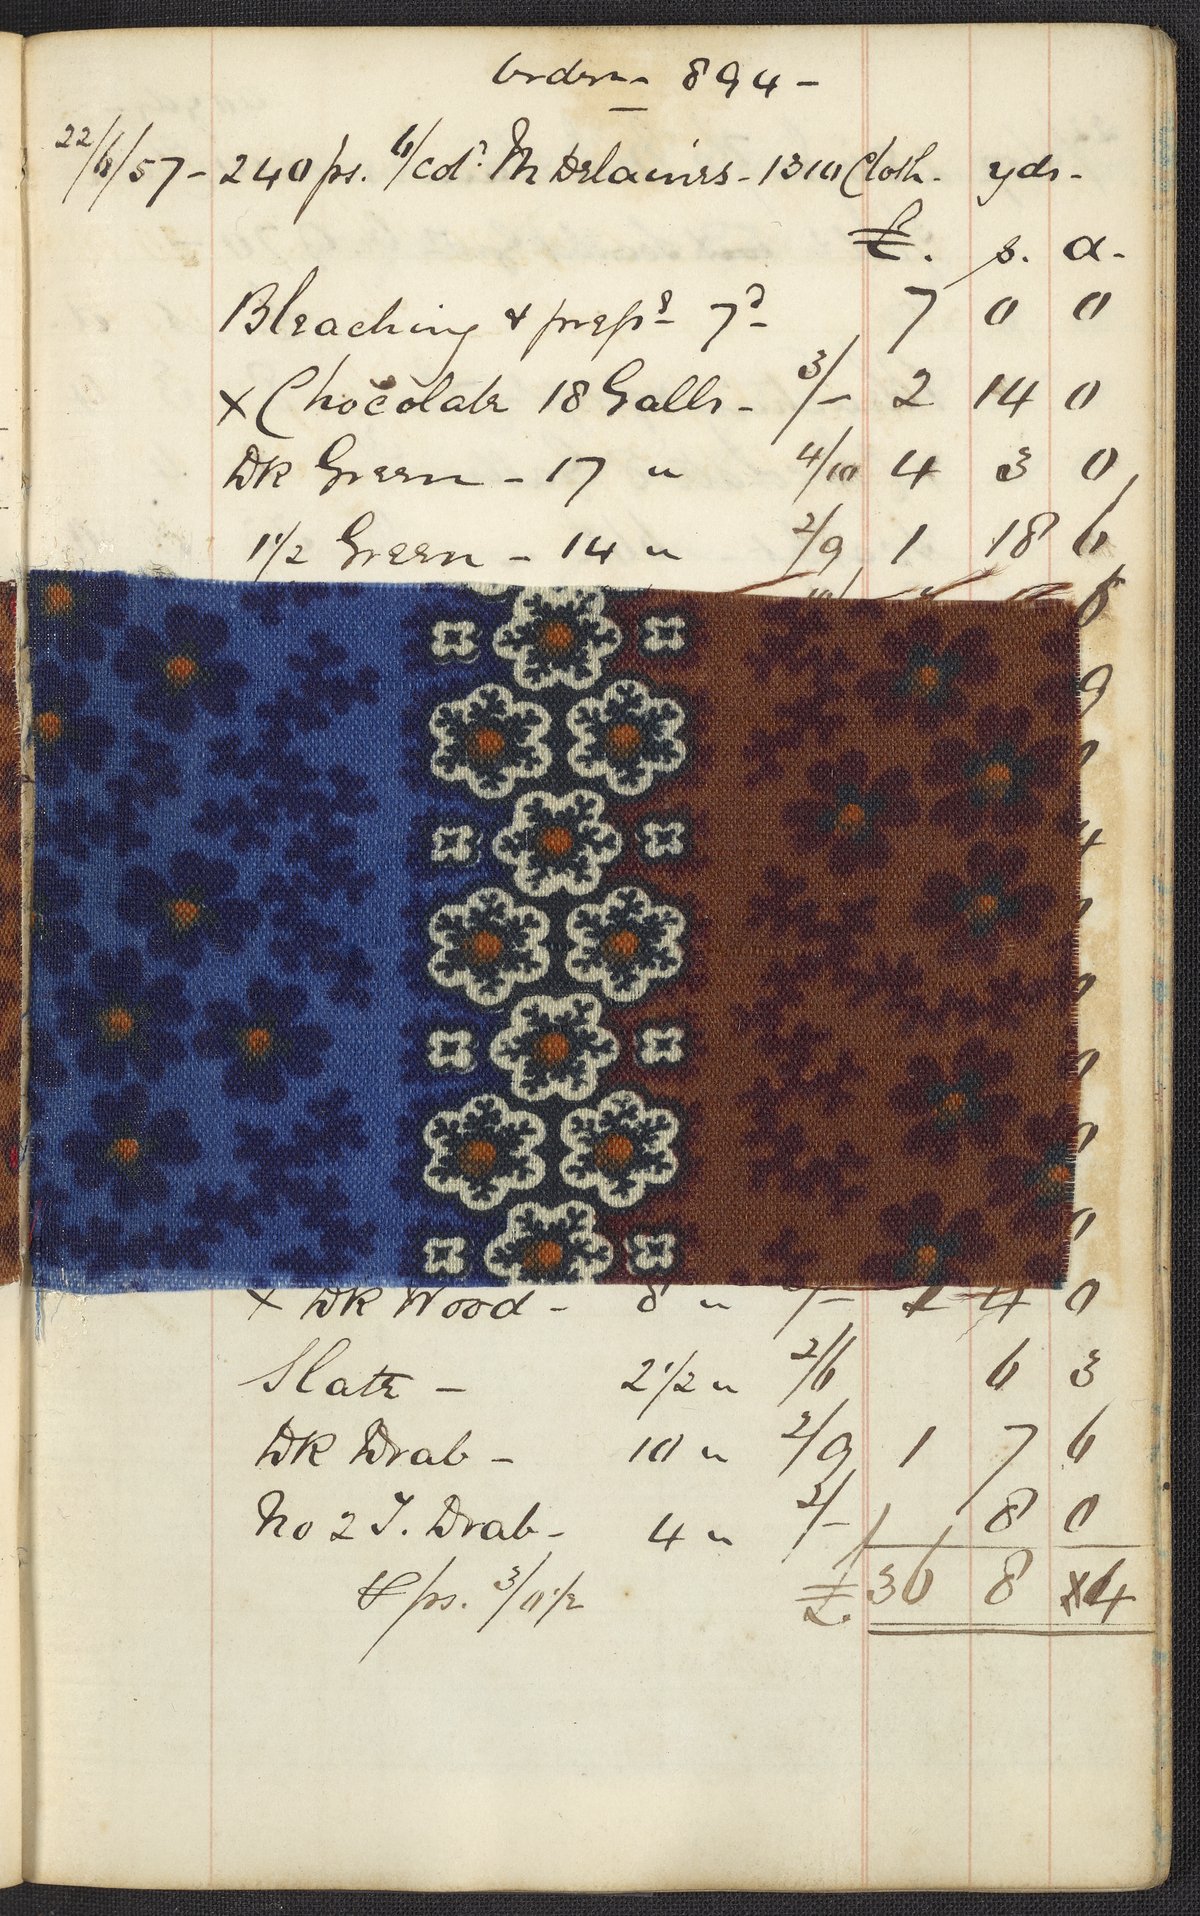 894 -
22/6/57 - 240 ps. 6/Cold. M Delaines - 1310 Cloth. yds -
£. s. d.
Bleaching & prepg. 7d 7 0 0
x Chocolate 18 Galls - 3/- 2 14 0
Dk Green - 17 " 4/10 4 3 0
1 1/2 Green - 14 " 2/9 1 18 6
9
0
4
0
0
0
0
x Dk Wood - 8 " 4 0
Slate - 2 1/2 " 2/6 6 3
Dk Drab - 10 " 2/9 1 7 6
No 2 T. Drab - 4 " 2/- 8 0
ps. 3/0 1/2 £ 36 8 4